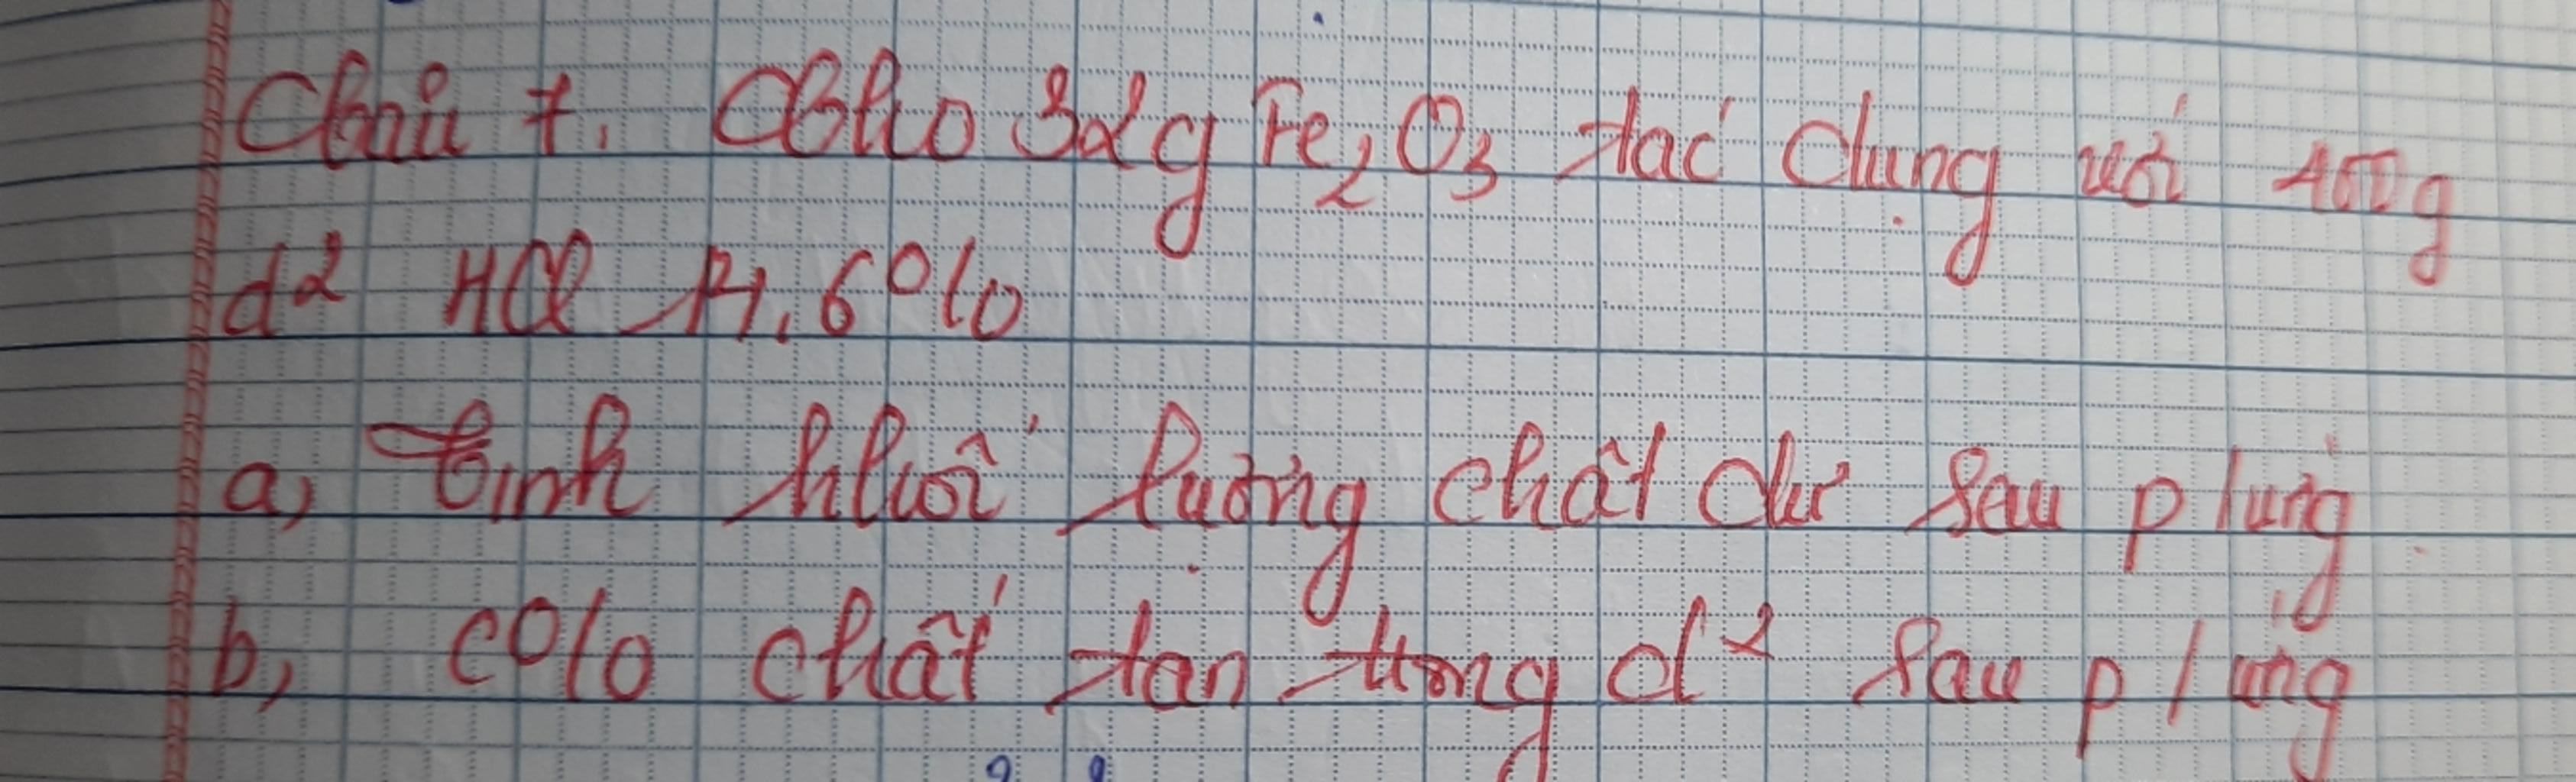 Câu 7. Cho 32g Fe₂O₃ tác dụng với 400g
d² HCl 14,6%
a, Tính khối lượng chất dư sau p/ứng.
b, C% chất tan trong d² sau p/ứng